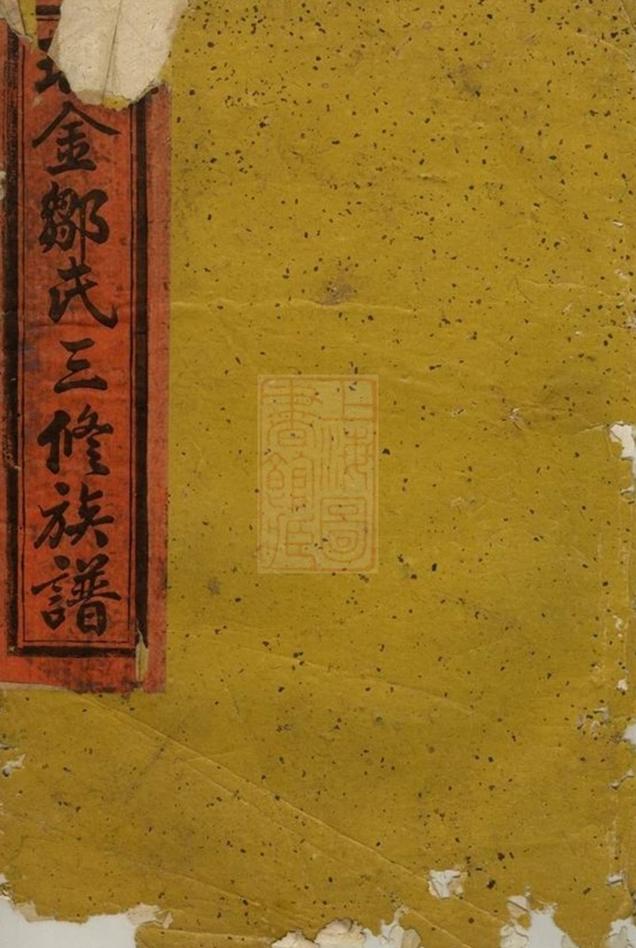 金鄒氏三修族譜
上海圖書館藏